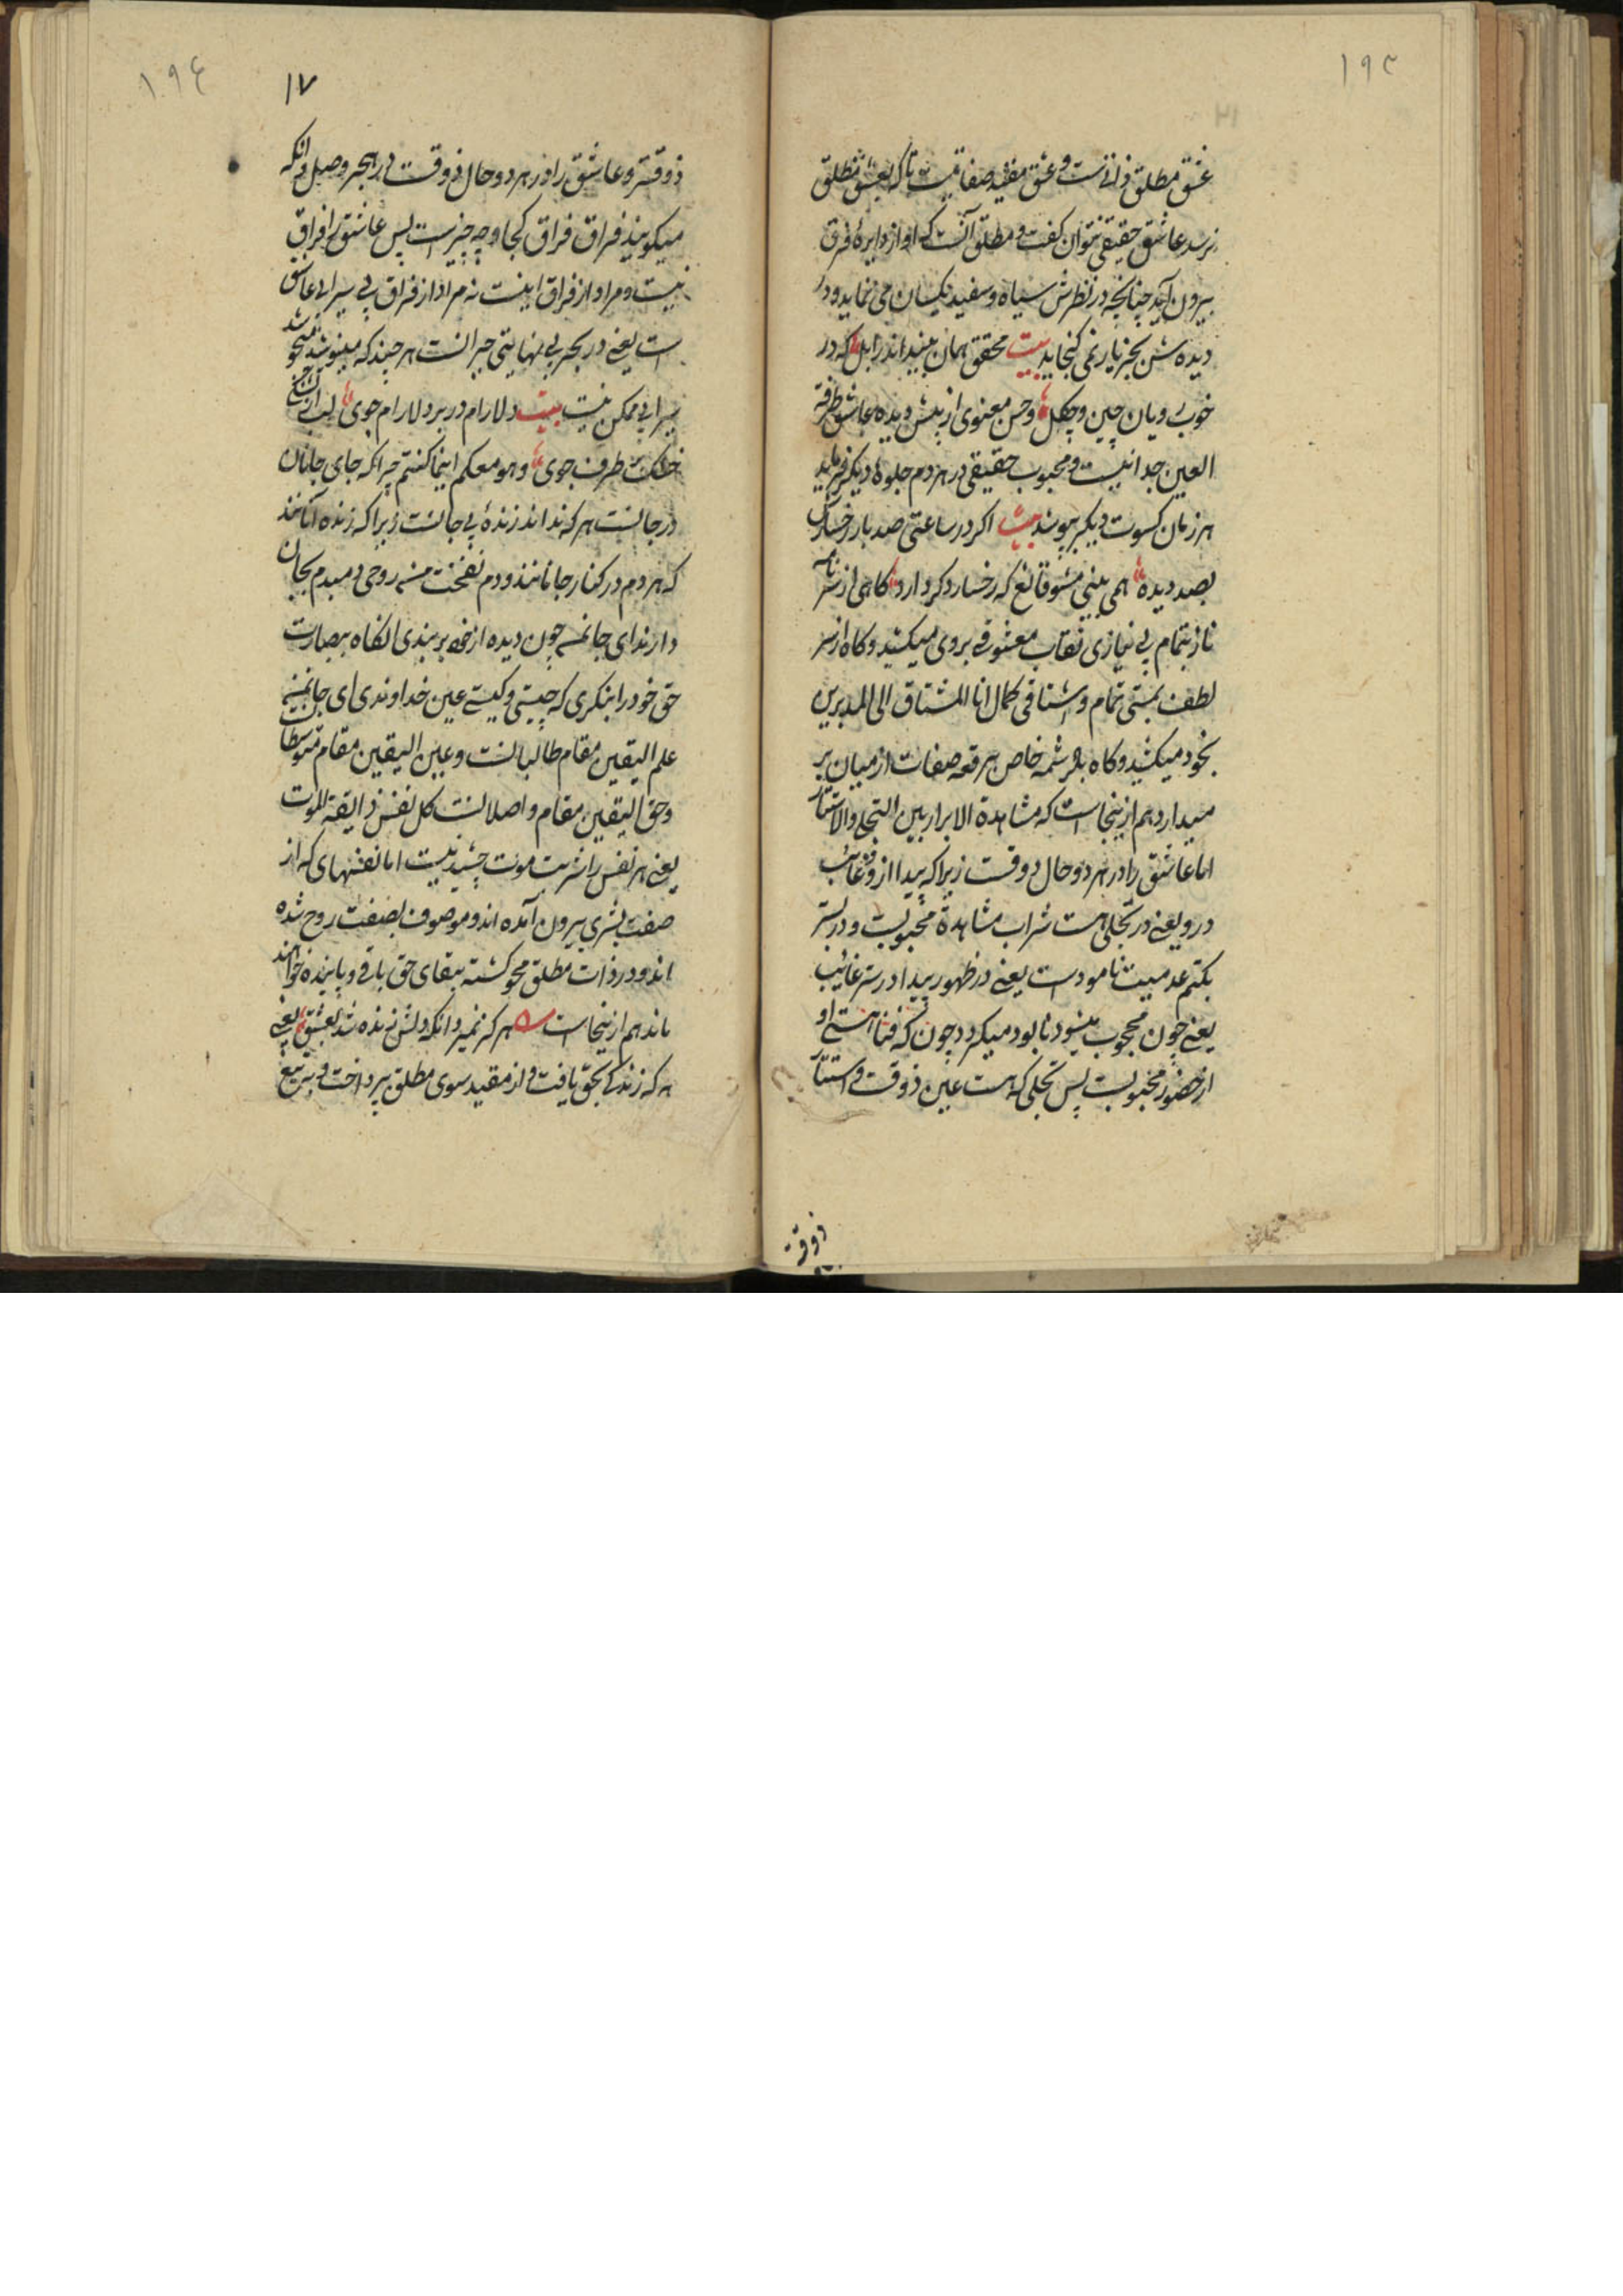 ۱۹۳
عشق مطلق ذاتیست و عشق مقید صفاتیست تا که بعشق مطلق
نرسد عاشق حقیقی نتوان کفت و مطلق آنست که او از دایرهٔ فرق
بیرون آید چنانچه در نظرش سیاه و سفید یکسان می نماید و در
دیده ش بجز یار نمی کنجاید بیت محقق همان بیند اندر ابل که در
خوب رویان چین و چکل و حسن معنوی از پیش دیده عاشق طرفة
العین جدا نیست و محبوب حقیقی در هر دم جلوهٔ دیکر فرماید
هر زمان کسوت دیکر پوشد بیت اکر در ساعتی صد بار رخسارش
بصد دیده همی بینی مشو قانع که رخسار دکر دارد کاهی از سر
ناز بتمام بی نیازی نقاب معشوقی بروی میکشد و کاه از سر
لطف بمستی تمام و اشتاقی کمال انا المشتاق الی المدبرین
بخود میکشد و کاه بکرشمه خاص برقعه صفات از میان بر
میدارد هم ازینجاست که مشاهدة الابرار بین التجلی والاستتار
اما عاشق را در هر دو حال ذوقست زیرا که پیدا ازو و غائب
درو یعنی در تجلی هست شراب مشاهدهٔ محبوبست و در ستر
بکتم عدمیت نامودست یعنی در ظهور پیدا در ستر غائب
یعنی چون محجوب میشود نابود میکردد چون که فنا هستی او
از حضور محبوبست پس تجلی که هست عین ذوقست و استتار
ذوقست
۱۹۴
۱۷
ذوقتر و عاشق را در هر دو حال ذوقست در هجر و وصل وانکه
میکویند فراق فراق کجا و چه چیز است پس عاشق را فراق
نیست و مراد از فراق اینست نه مراد از فراق بی سیرابی عاشق
است یعنی در بحر بی نهایتی حیرانست هر چند که مینوشد
سیرابی ممکن نیست بیت دلارام در بر دلارام جوی لب از تشنکی
خشک بر طرف جوی و هو معکم اینما کنتم چرا که جای جانان
در جانست هر که نداند زندهٔ بی جانست زیرا که زنده آنانند
که هر دم در کنار جانانند و دم نفخت فیه من روحی دمبدم بجان
دارند ای جانم چون دیده از خود بر بندی آنکاه ببصارت
حق خود را بنکری که چیستی و کیستی عین خداوندی ای جانم
علم الیقین مقام طالبانست و عین الیقین مقام متوسطان
و حق الیقین مقام واصلانست کل نفس ذایقة الموت
یعنی هر نفس را شربت موت چشیدنیست اما نفسهای که از
صفت بشری بیرون آمده اند و موصوف بصفت روح شده
اند و در ذات مطلق محو کشته ببقای حق باقی و پاینده خواهند
ماند هم ازینجاست هرکز نمیرد آنکه دلش زنده شد بعشق یعنی
هر که زندکی بحق یافت و از مقید سوی مطلق پرداخت و بتیغ